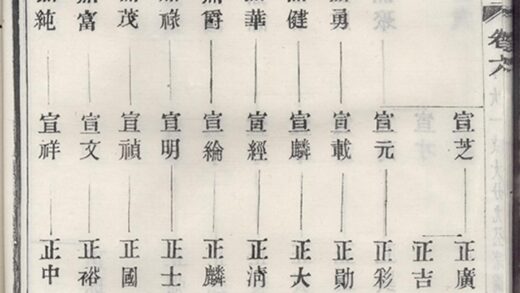 卷六
宣芝 正廣
正吉
宣元 正彩
勇 宣載 正勛
健 宣麟 正大
華 宣經 正淸
爵 宣綸 正麟
祿 宣明 正士
茂 宣禎 正國
富 宣文 正裕
純 宣祥 正中